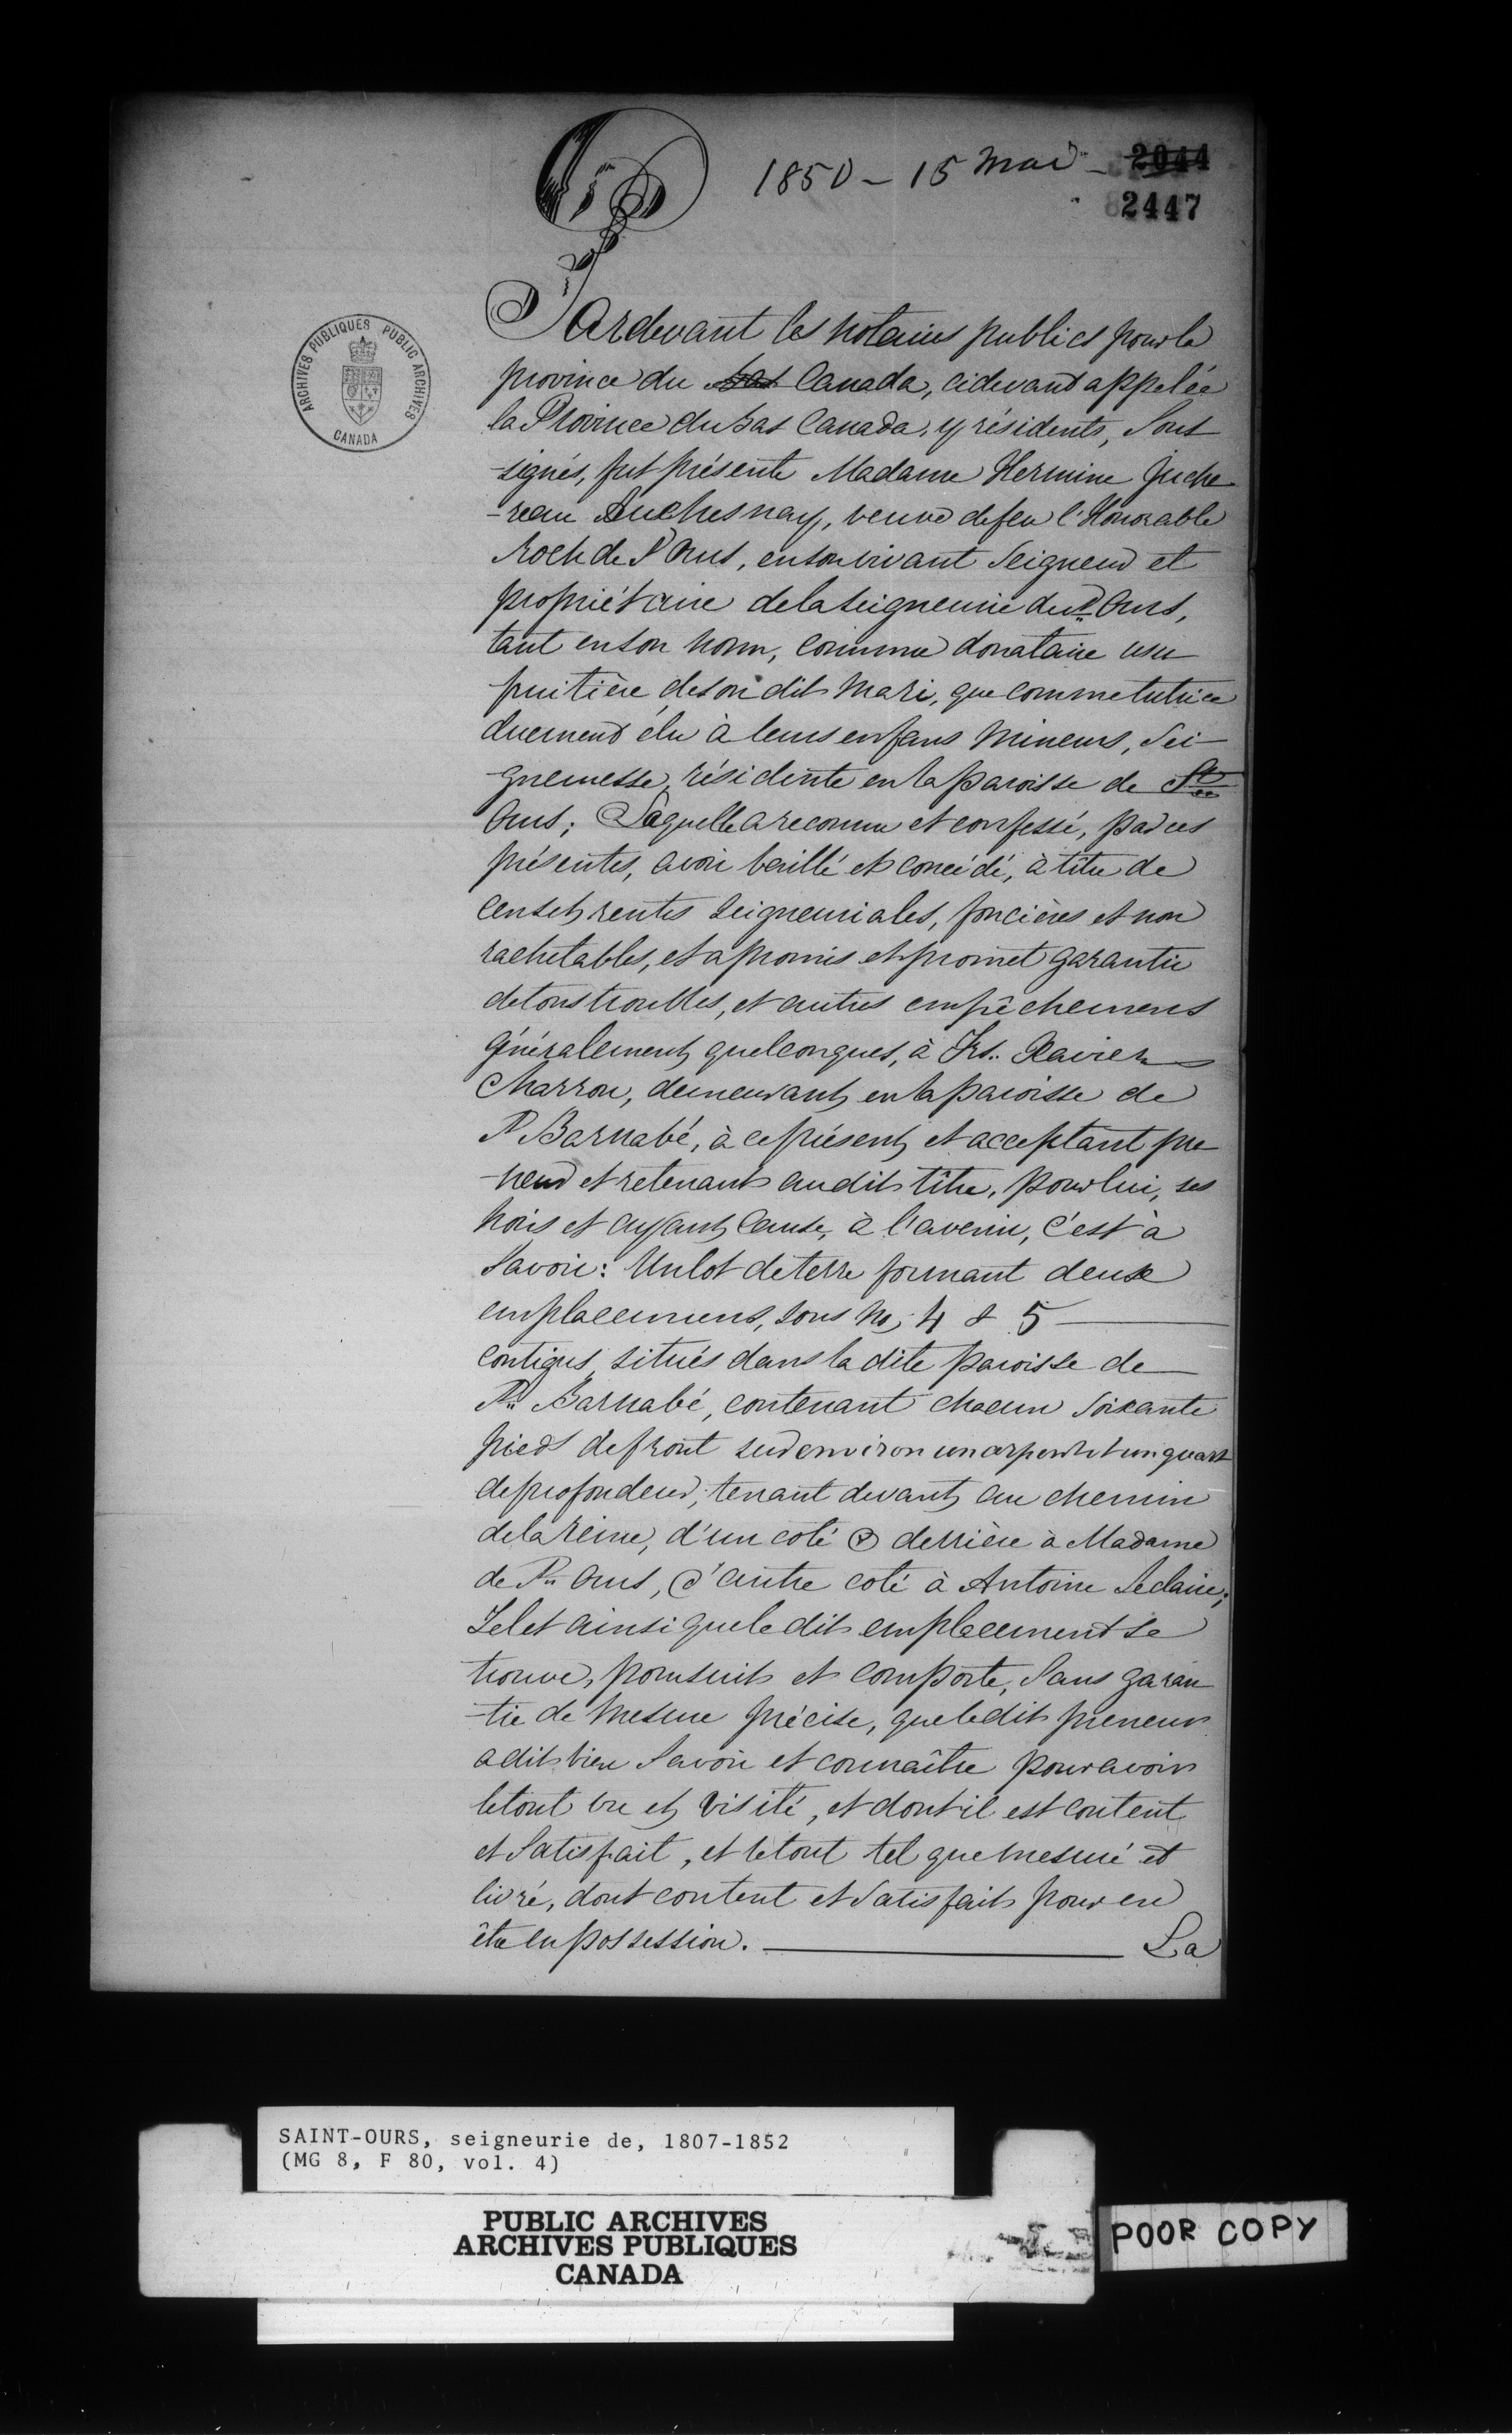 1850 - 15 Mai - 2044
2447
ARCHIVES PUBLIQUES PUBLIC ARCHIVES
CANADA
Pardevant les notaires publics pour la
province du bas Canada, cidevant appelée
la Province du bas Canada, y résidents, Sous
-signés, fut présente Madame Hermine Juche
-reau Duchesnay, veuve de feu l'Honorable
Roch de St Ours, en son vivant Seigneur et
propriétaire de la seigneurie de St. Ours,
tant en son nom, comme donataire usu
fruitière de son dit mari, que comme tutrice
duement élu à leurs enfans mineurs, Sei-
-gneuresse, résidente en la paroisse de St.
Ours; Laquelle a reconnu et confessé, par ces
présentes, avoir baillé et concédé, à titre de
cens et rentes seigneuriales, foncières et non
rachetables, et a promis et promet garantir
de tous troubles, et autres empêchemens
généralement quelconques, à Frs. Xavier
Charron, demeurant en la paroisse de
St Barnabé, à ce présent et acceptant pre
-neur et retenant audit titre, pour lui, ses
hoirs et ayant cause, à l'avenir, c'est à
Savoir: Un lot de terre formant deux
emplacemens, sous No, 4 & 5
contigus, situés dans la dite paroisse de
St. Barnabé, contenant chacun soixante
pieds de front sur environ un arpent et un quart
de profondeur; tenant devant au chemin
de la reine, d'un coté & derrière à Madame
de St. Ours, d'autre coté à Antoine Leclaire;
Tel et ainsi que le dit emplacement se
trouve, poursuit et comporte, Sans garan
-tie de mesure précise, que le dit preneur
a dit bien savoir et connaître pour avoir
le tout vu et visité, et dont il est content
et satisfait, et le tout tel que mesuré et
livré, dont content et satisfait pour en
être en possession. La
SAINT-OURS, seigneurie de, 1807-1852
(MG 8, F 80, vol. 4)
PUBLIC ARCHIVES
ARCHIVES PUBLIQUES
CANADA
POOR COPY